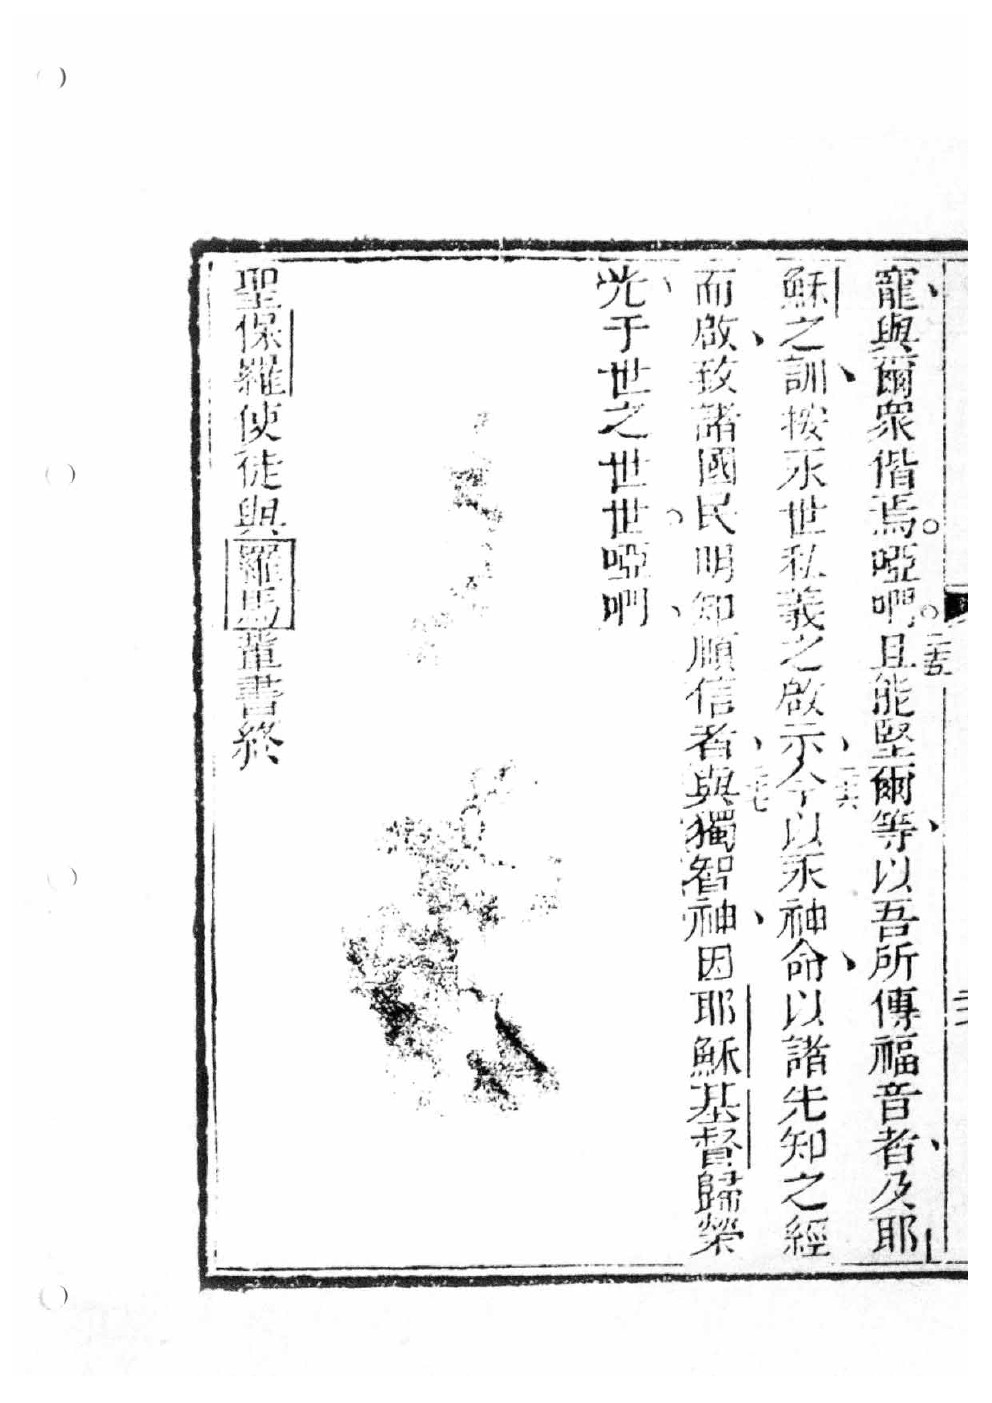 寵與爾衆偕焉。啞們。二五且能堅爾等、以吾所傳福音者、及耶
穌之訓、按永世私義之啟示、二六今以永神命、以諸先知之經
而啟、致諸國民明知順信者、二七與獨智神、因耶穌基督歸榮
光、于世之世世。啞們、
聖保羅使徒與羅馬輩書終